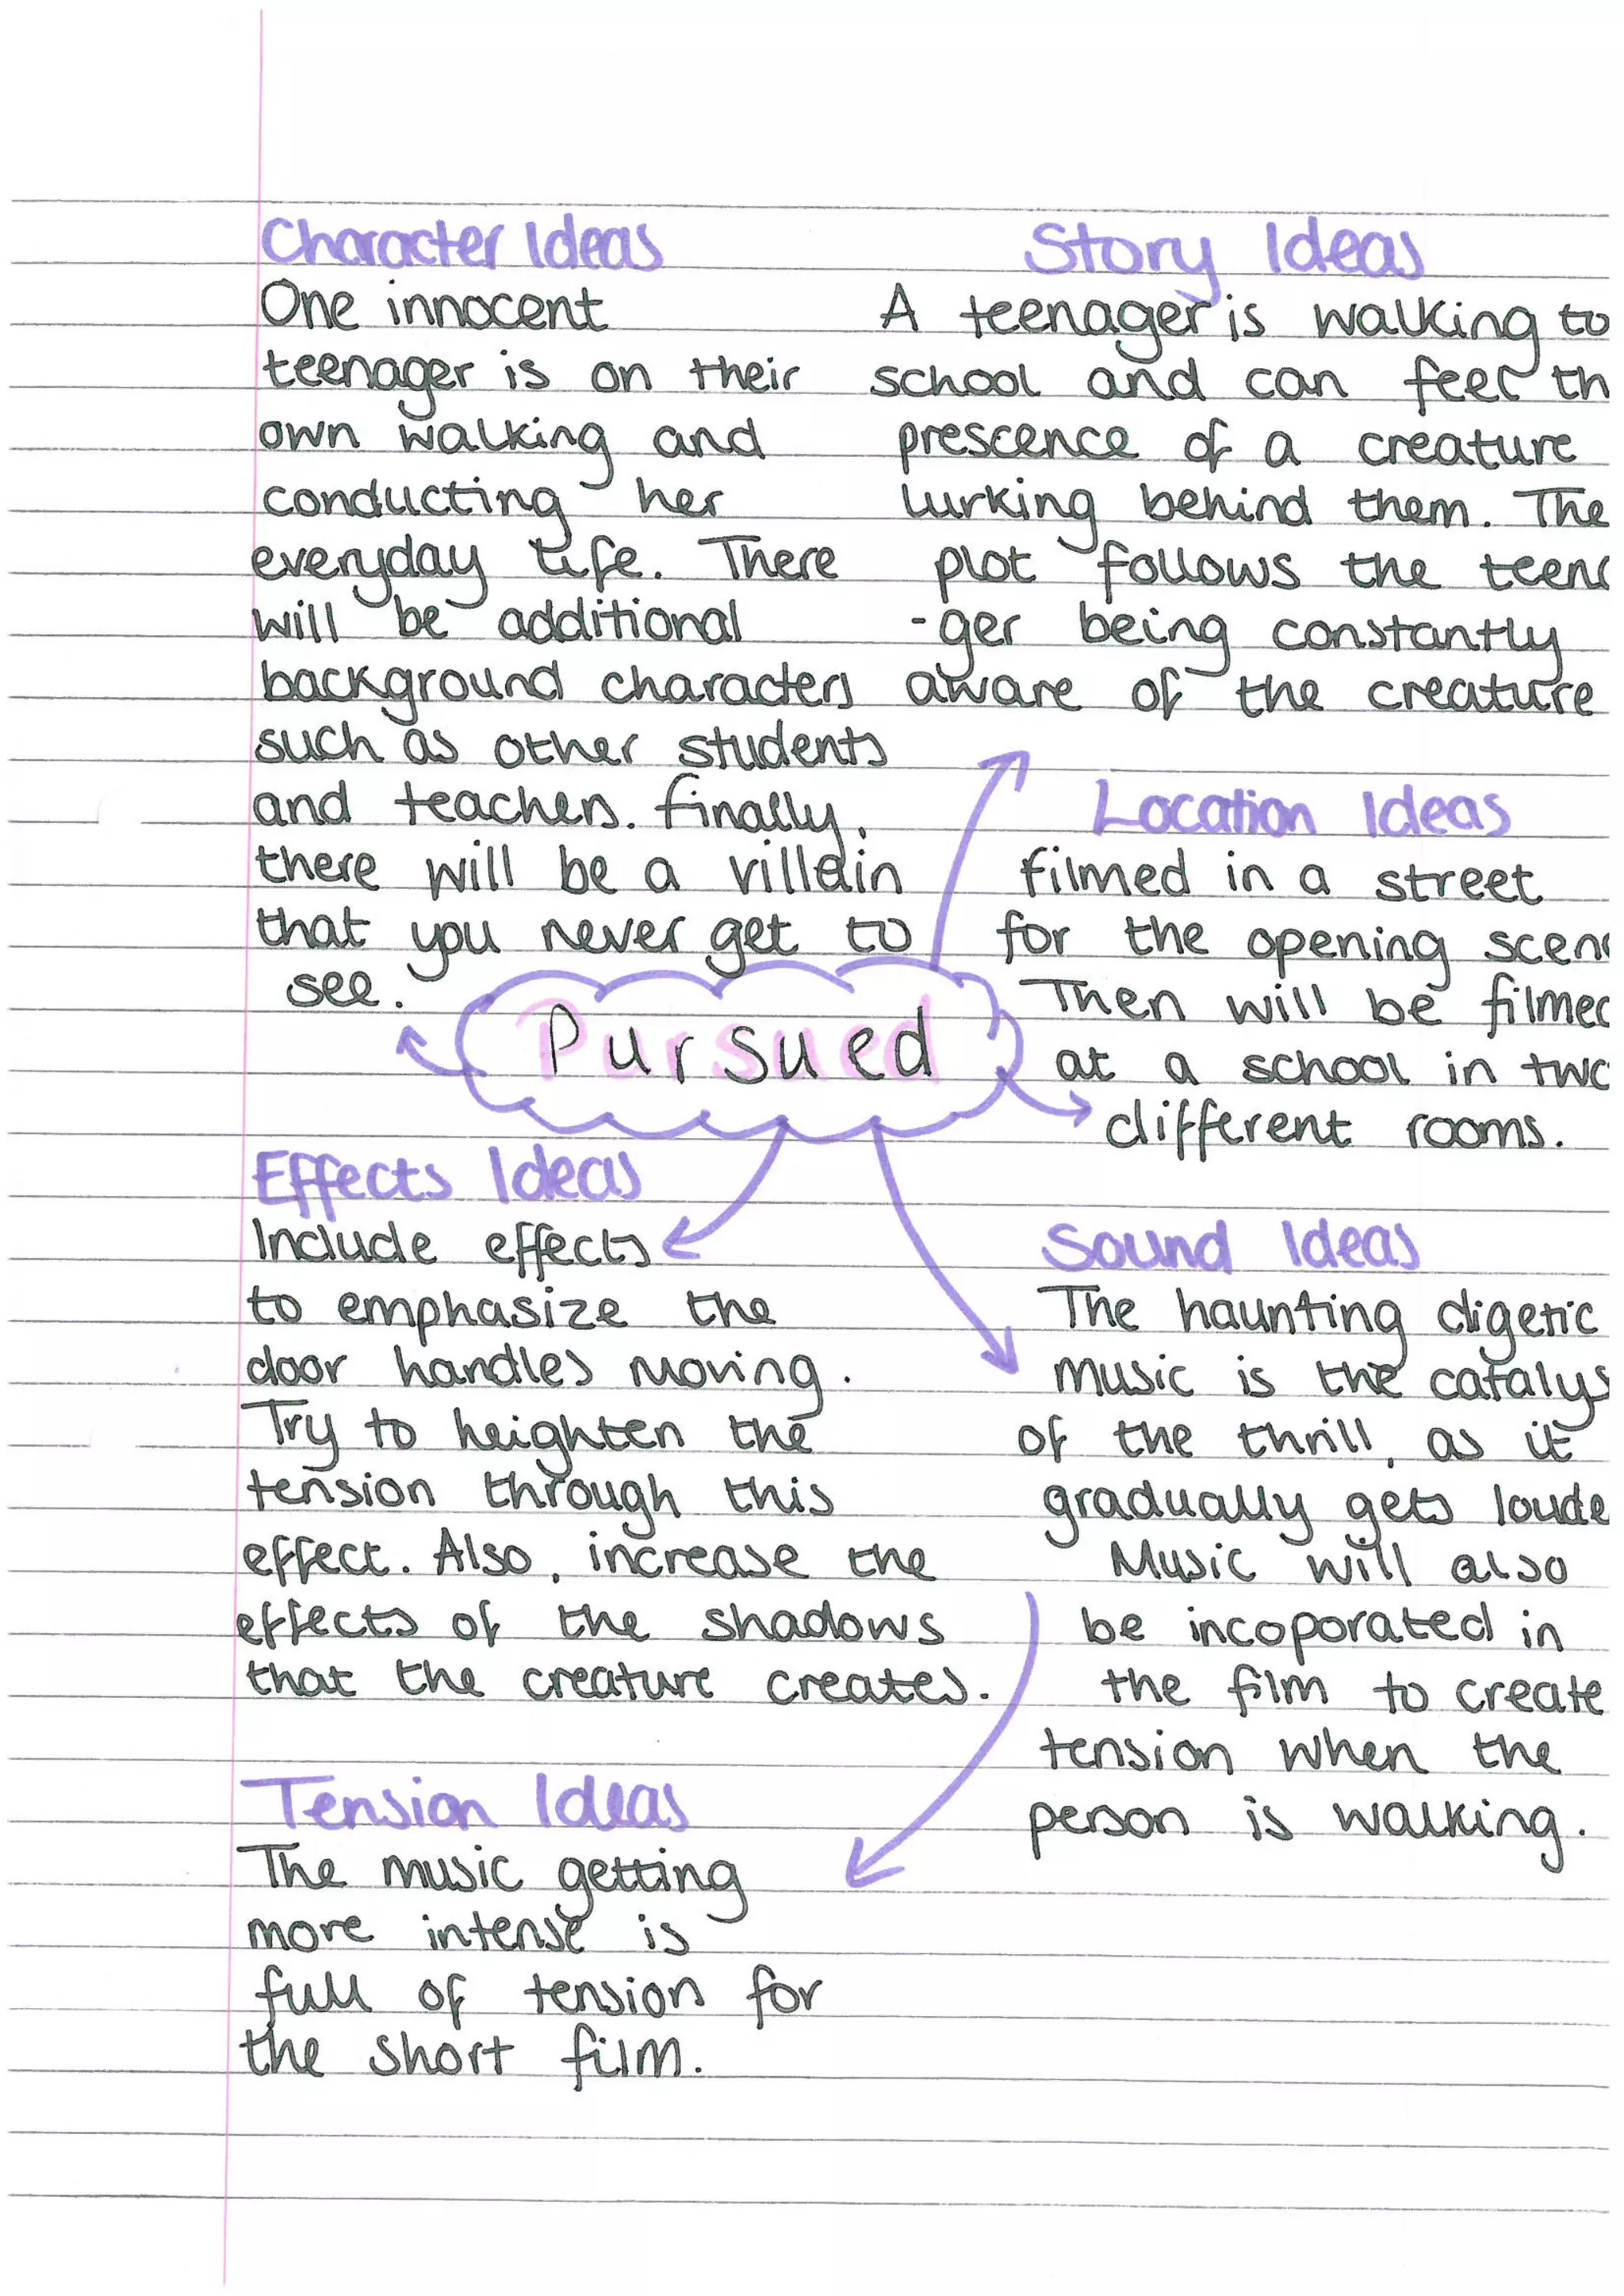 Character Ideas
One innocent
teenager is on their
own walking and
conducting her
everyday life. There
will be additional
background characters
such as other students
and teachers. Finally,
there will be a villain
that you never get to
see.
Story Ideas
A teenager is walking to
school and can feel th
prescence of a creature
lurking behind them. The
plot follows the teena
-ger being constantly
aware of the creature
Location Ideas
filmed in a street
for the opening scene
Then will be filmed
at a school in two
different rooms.
Pursued
Effects Ideas
Include effects
to emphasize the
door handles moving.
Try to heighten the
tension through this
effect. Also, increase the
effects of the shadows
that the creature creates.
Sound Ideas
The haunting digetic
music is the catalys
of the thrill, as it
gradually gets loude
Music will also
be incoporated in
the film to create
tension when the
person is walking.
Tension Ideas
The music getting
more intense is
full of tension for
the short film.